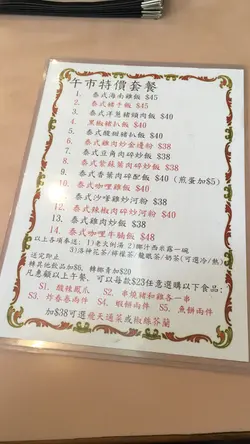 午市特價套餐
1. 泰式海南雞飯 $45
2. 泰式豬手飯 $45
3. 泰式洋蔥豬頸肉飯 $40
4. 黑椒豬扒飯 $40
5. 泰式酸甜豬扒飯 $40
6. 泰式雞肉炒金邊粉 $38
7. 泰式豆角肉碎炒飯 $38
8. 泰式紫蘇葉肉碎炒飯 $38
9. 泰式香葉肉碎配飯 $40 (煎蛋加$5)
10. 泰式咖哩雞飯 $40
11. 泰式沙嗲雞炒河粉 $38
12. 泰式辣椒肉碎炒河粉 $40
13. 泰式雞肉炒飯 $38
14. 泰式咖哩牛腩飯 $48
以上各項奉送: 1)老火例湯 2)椰汁西米露一碗
3)洛神花茶/檸檬茶/龍眼茶/奶茶(可選冷/熱)
送完即止
轉其他飲品加$6, 轉椰青加$20
凡惠顧以上午餐, 可以每款$23任意選購以下食品:
S1. 酸辣鳳爪 S2. 串燒豬和雞各一串
S3. 炸春卷兩件 S4. 蝦餅兩件 S5. 魚餅兩件
加$38可選飛天通菜或椒絲芥蘭